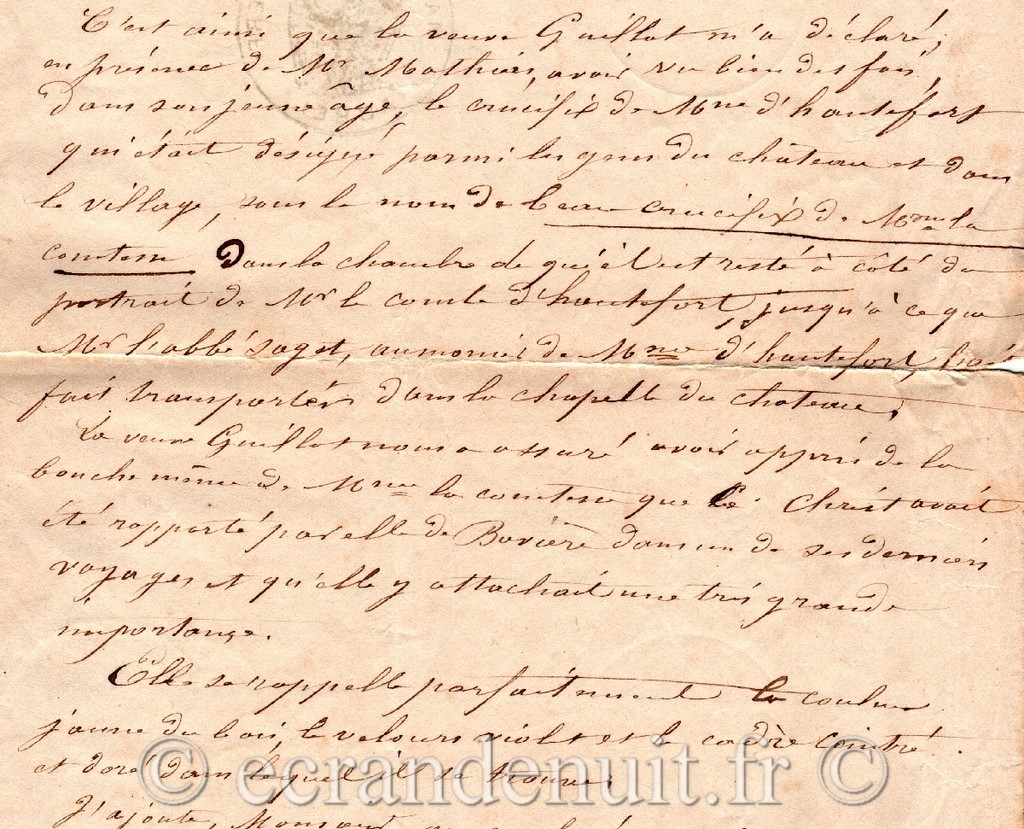 C'est ainsi que la veuve Guillot m'a déclaré,
en présence de Mr Mathieu, avoir vu bien des fois,
dans son jeune âge, le crucifix de Mme d'hautefort
qui était désigné parmi les gens du château et dans
le village, sous le nom de beau crucifix de Mme la
comtesse Dans la chambre de qui il est resté à côté du
portrait de Mr le comte d'hautefort, jusqu'à ce que
Mr l'abbé Saget, aumonier de Mme d'hautefort, l'ai
fait transporter dans la chapelle du chateau.
La veuve Guillot nous a assuré avoir appris de la
bouche même de Mme la comtesse que le Christ avait
été rapporté par elle de Bavière dans un de ses derniers
voyages et qu'elle y attachait une très grande
importance.
Elle se rappelle parfaitement la couleur
jaune du bois, le velours violet et le cadre cintré
et doré dans lequel il se trouve.
J'ajoute,
© ecrandenuit.fr ©